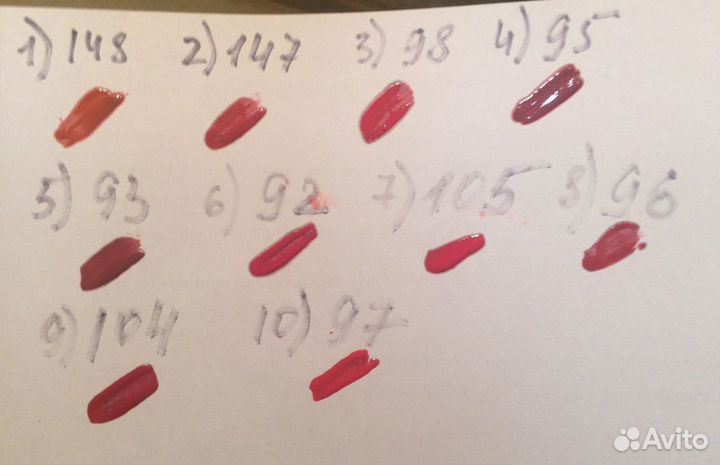 1) 148 2) 147 3) 98 4) 95
5) 93 6) 92 7) 105 8) 96
9) 104 10) 97
Avito